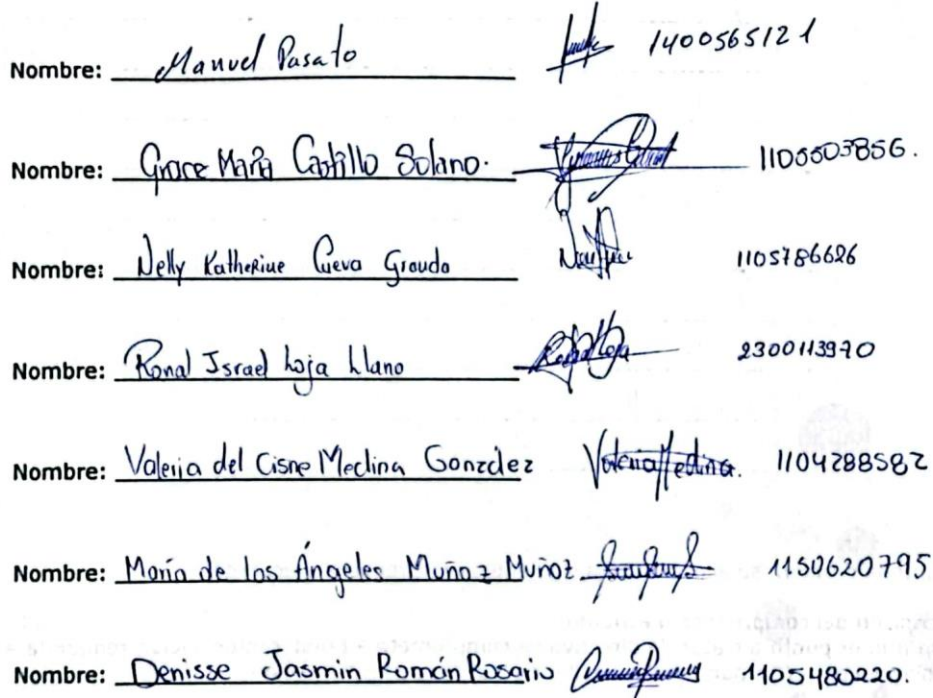 Nombre: Manuel Pasato 1400565121
Nombre: Grace María Castillo Solano. 1105503856.
Nombre: Nelly Katherine Cueva Granda 1105786626
Nombre: Ronal Israel Loja Llano 2300113970
Nombre: Valeria del Cisne Medina Gonzalez Valeria Medina. 1104288582
Nombre: María de los Ángeles Muñoz Muñoz 1150620795
Nombre: Denisse Jasmin Román Rosario 1105480220.